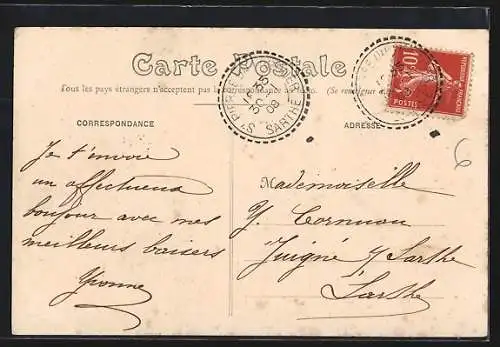 Carte Postale
Tous les pays étrangers n'acceptent pas la correspondance au recto. (Se renseigner à la
CORRESPONDANCE
ADRESSE
Je t'envoie
un affectueux
bonjour avec mes
meilleurs baisers
Yvonne
Mademoiselle
Y. Cornuau
Juigné s/ Sarthe
Sarthe
15
30
08
SARTHE
10c
POSTES
REPUBLIQUE FRANÇAISE